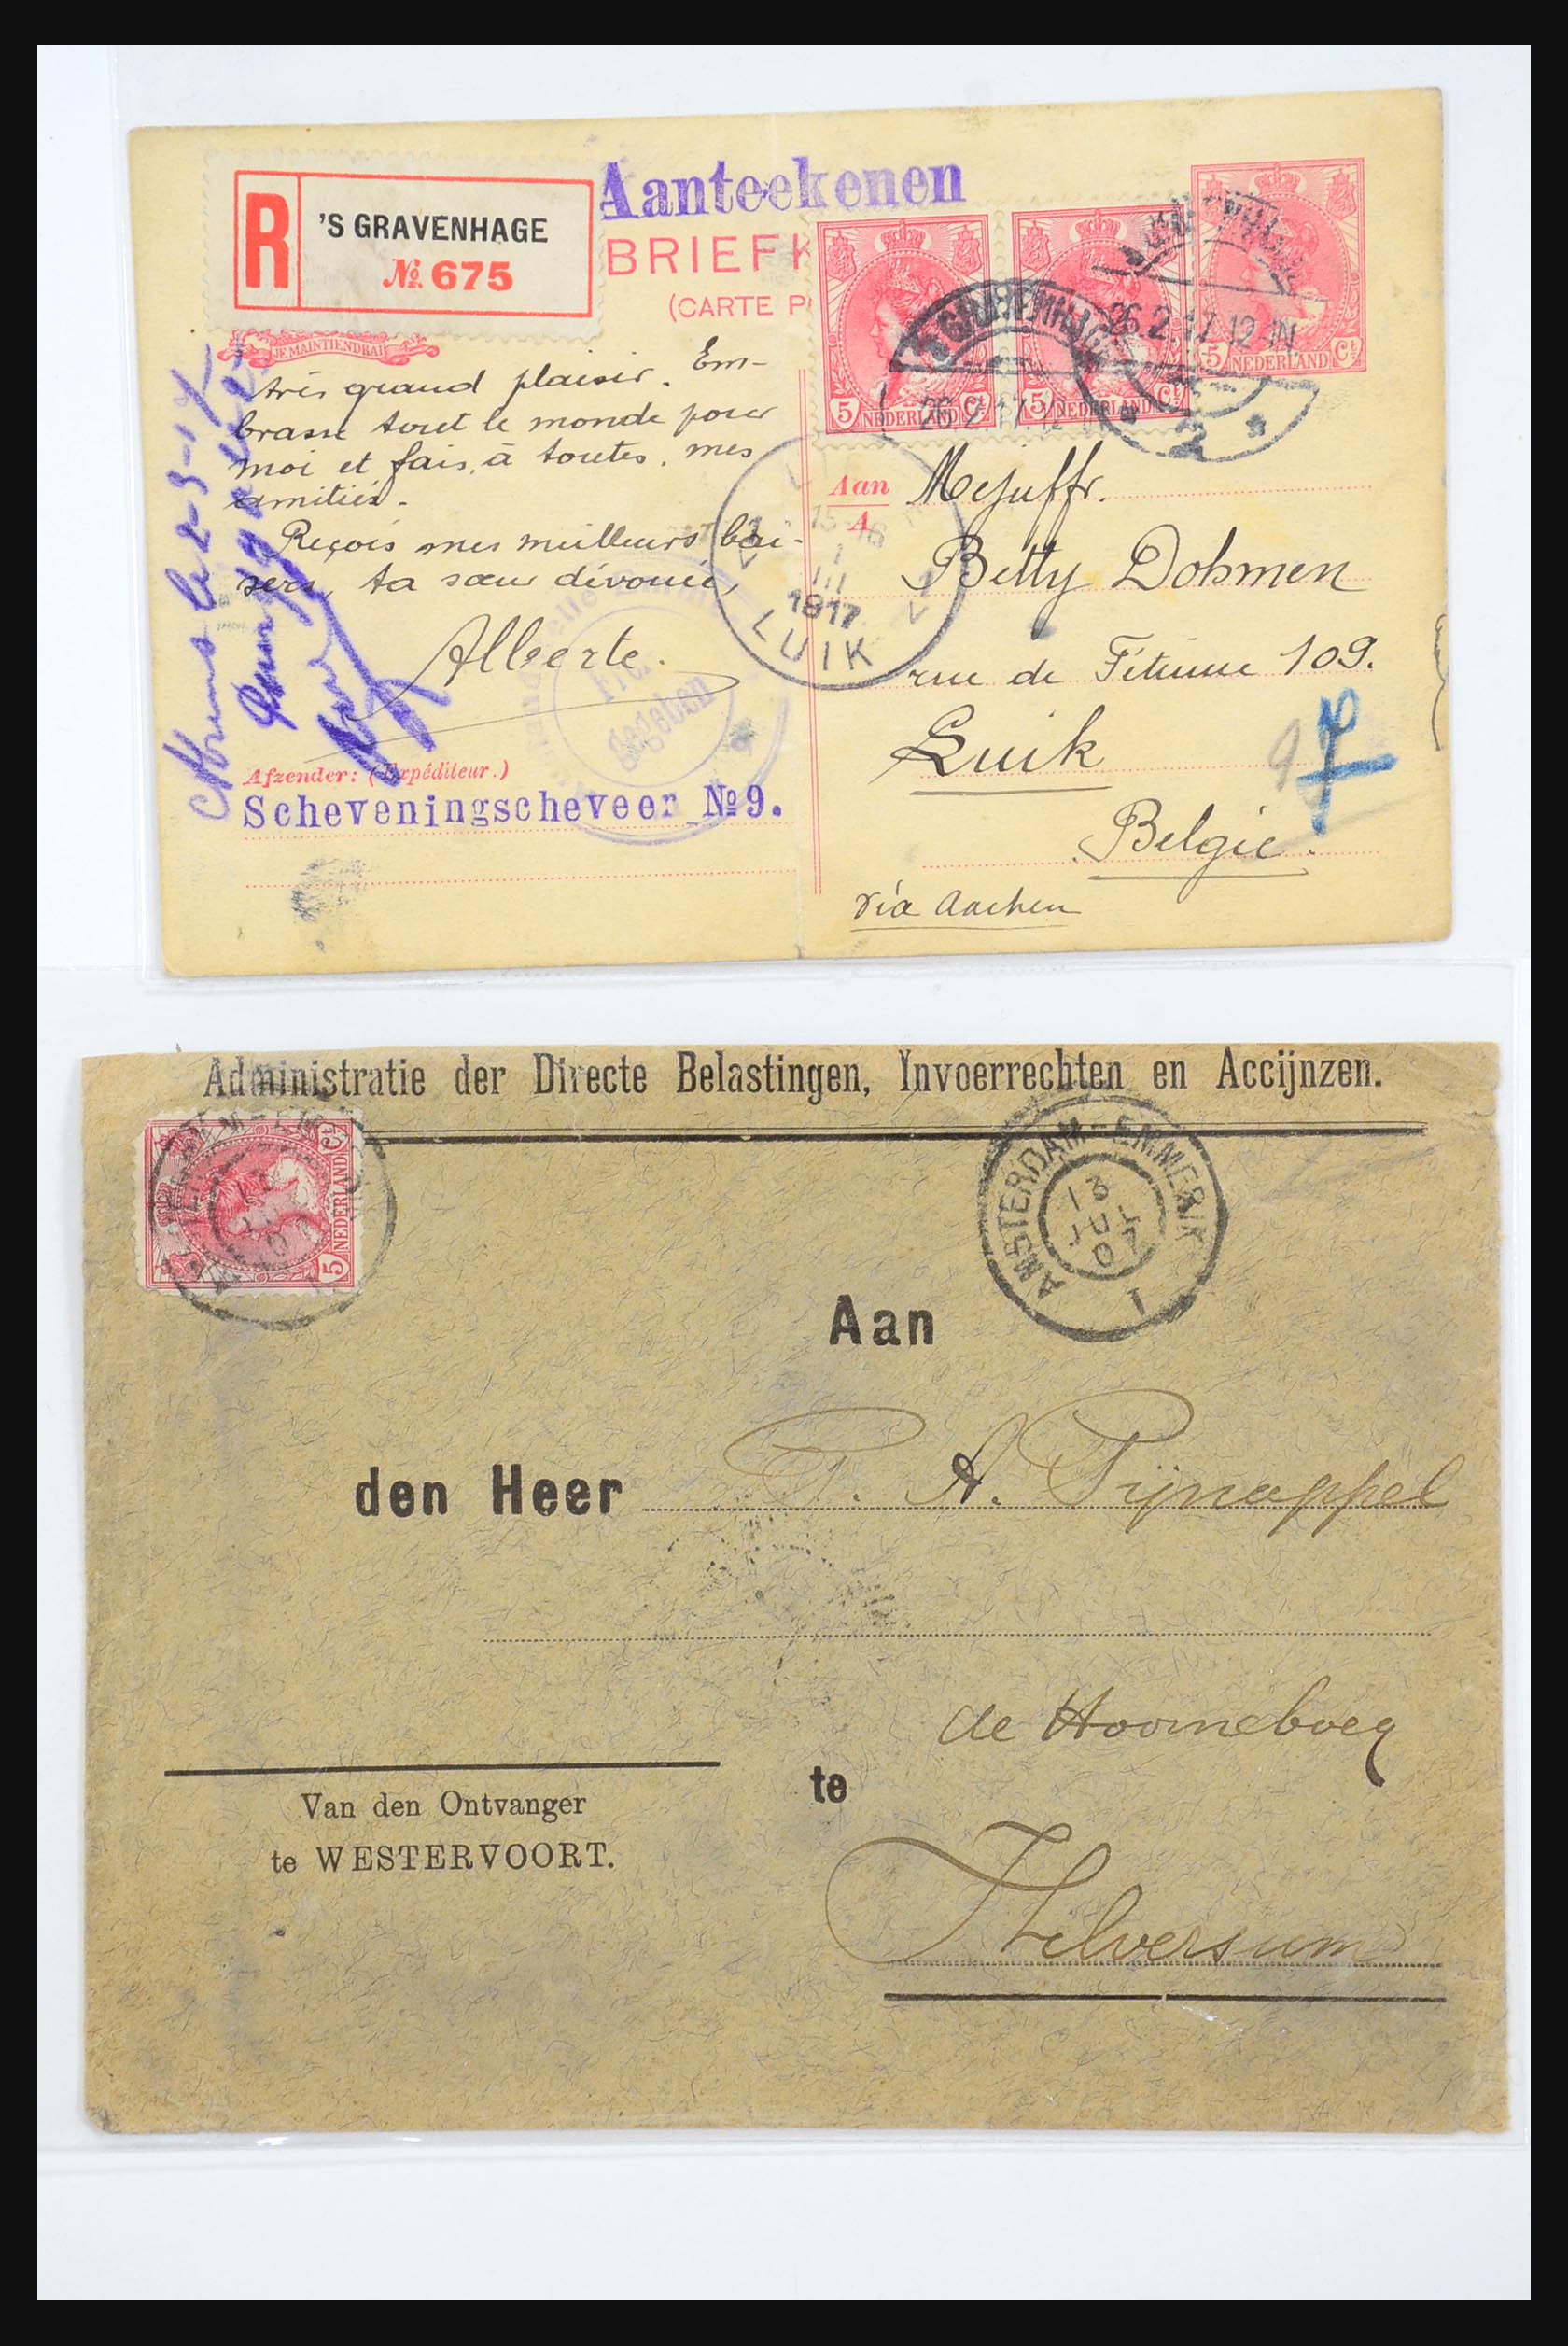 Aanteekenen
R 'S GRAVENHAGE
№ 675
BRIEFK
(CARTE P
JE MAINTIENDRAI
très grand plaisir. Em-
brasse tout le monde pour
moi et fais, à toutes, mes
amitiés.
Reçois mes meilleurs bai-
sers, ta sœur dévouée,
Alberte.
Afzender: (Expéditeur.)
Scheveningscheveer №9.
5 NEDERLAND Ct
5 NEDERLAND Ct
5 NEDERLAND Ct
26.2.17.12
26.2.17.12-1N
2
15-16
1
III
1917
LUIK
Freigegeben
Aan
A
Mejuffr.
Betty Dohmen
rue de Fétinne 109.
Luik
Belgie.
via Aachen
Administratie der Directe Belastingen, Invoerrechten en Accijnzen.
5 NEDERLAND Ct
AMSTERDAM-EMMERIK
13
JUL
07
1
Aan
den Heer P. A. Pijnappel
de Hoorneboeg
te
Hilversum
Van den Ontvanger
te WESTERVOORT.